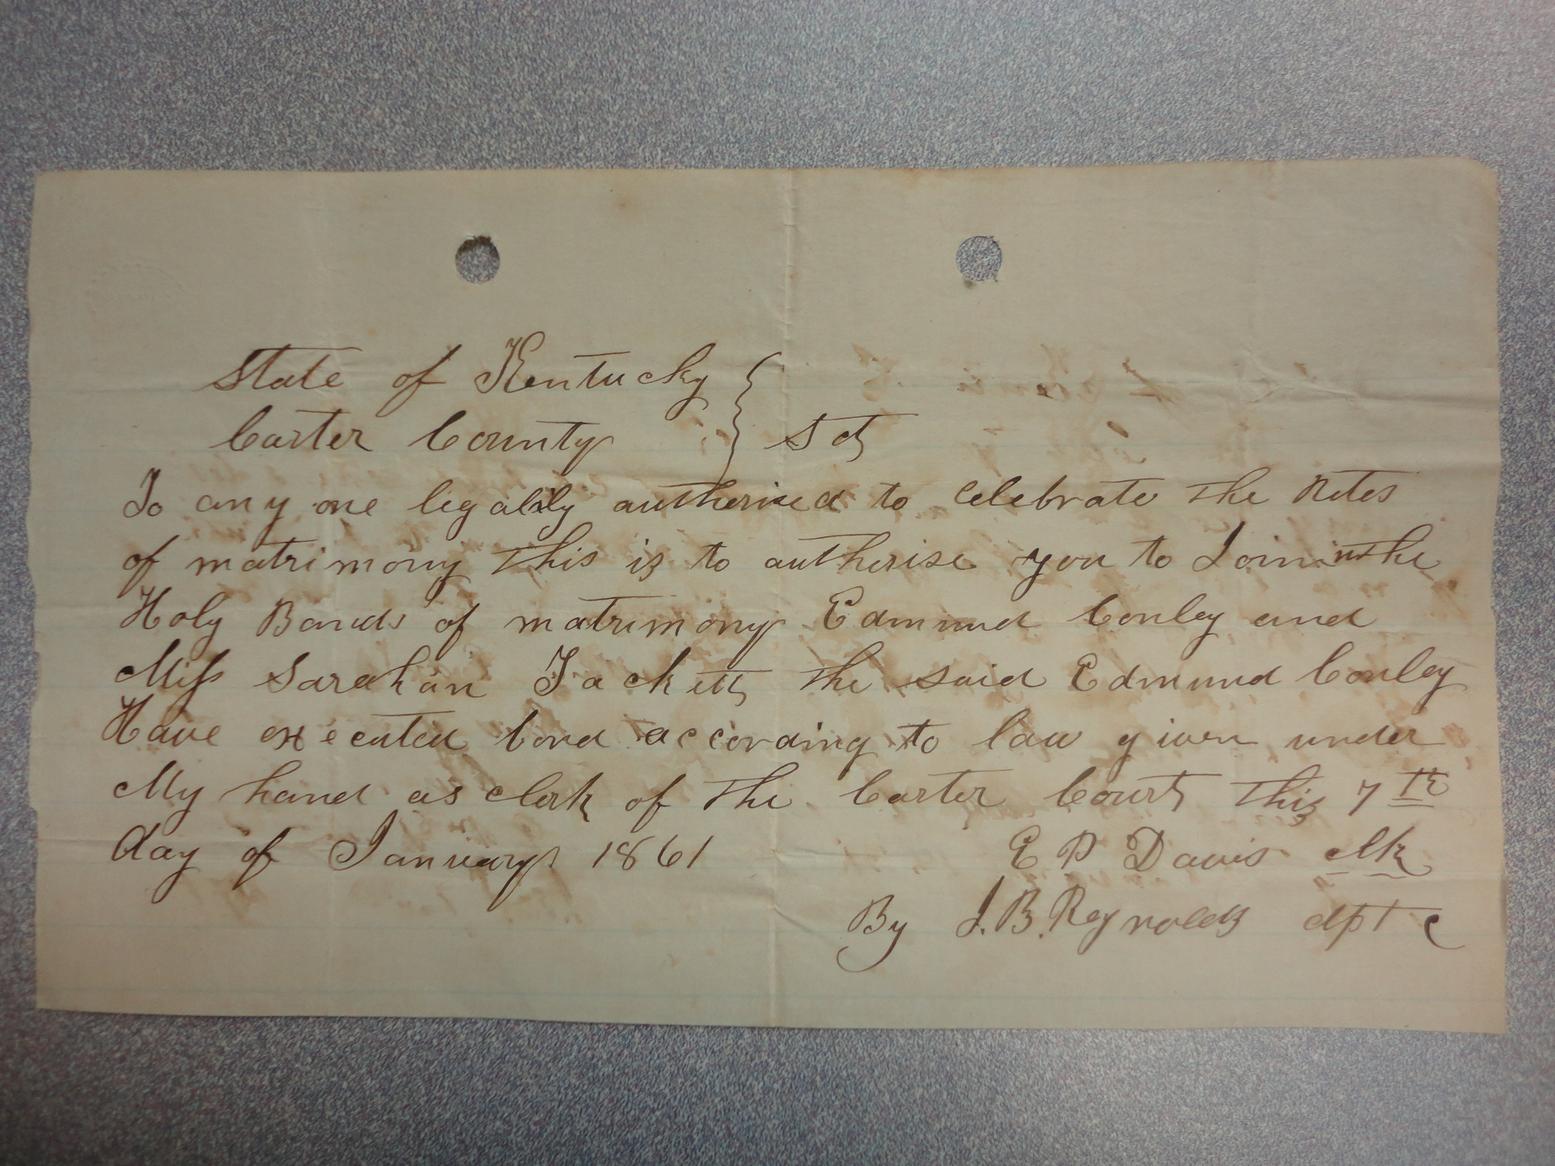 State of Kentucky }
Carter County } Sct
To any one legally authorised to celebrate the Rites
of matrimony this is to authorise you to Join in the
Holy Bands of matrimony Edmund Conley and
Miss Sarahan Jackett the said Edmund Conley
Have executed bond according to law given under
My hand as clerk of the Carter Court this 7th
day of January 1861 E P Davis clk
By J. B. Reynolds dpt c